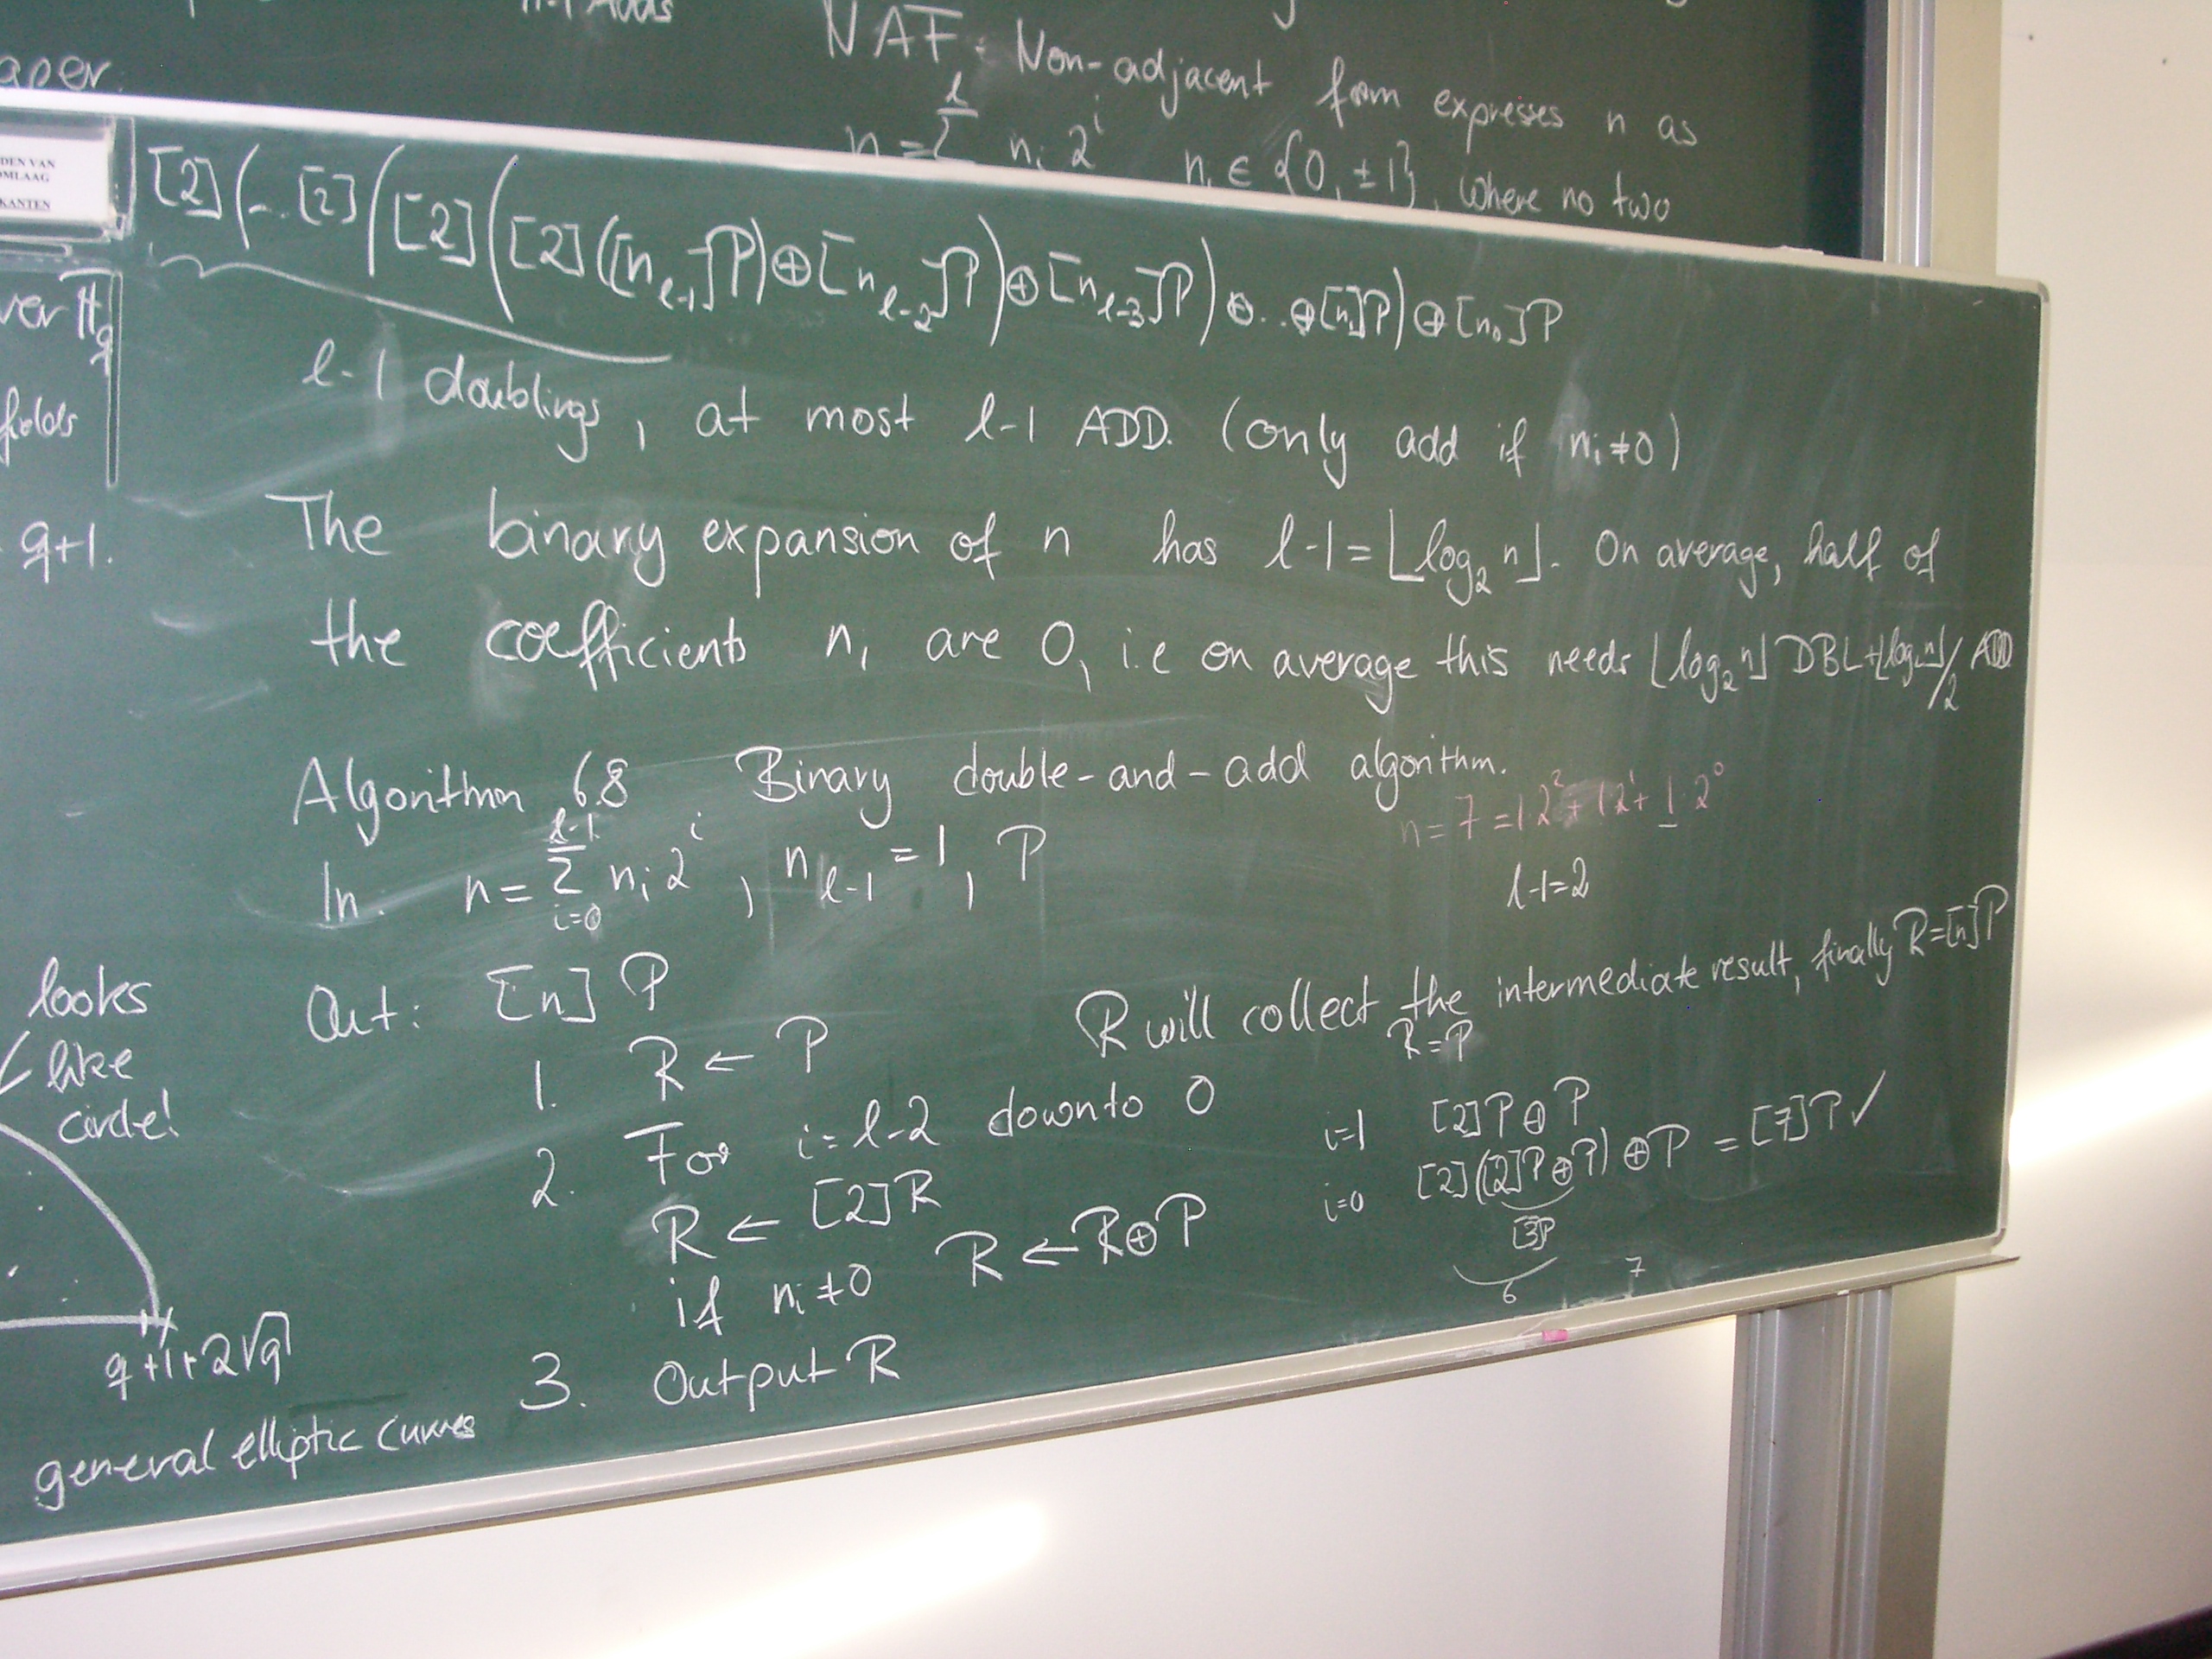 aper.
NAF: Non-adjacent form expresses n as
n = Σ^l n_i 2^i n_i ∈ {0, ±1}, where no two
DEN VAN
OMLAAG
KANTEN
[2](... [2]([2]([2]([n_{l-1}]P)⊕[n_{l-2}]P)⊕[n_{l-3}]P)⊕...⊕[n_1]P)⊕[n_0]P
l-1 doublings, at most l-1 ADD. (only add if n_i≠0)
The binary expansion of n has l-1=⌊log_2 n⌋. On average, half of
the coefficients n_i are 0, i.e on average this needs ⌊log_2 n⌋ DBL+⌊log_2 n⌋/2 ADD
Algorithm 6.8 Binary double-and-add algorithm.
In. n = Σ_{i=0}^{l-1} n_i 2^i, n_{l-1} = 1, P
Out: [n] P
1. R ← P
2. For i=l-2 downto 0
R ← [2]R
if n_i≠0 R ← R⊕P
3. Output R
n = 7 = 1·2^2 + 1·2^1 + 1·2^0
l-1=2
R will collect the intermediate result, finally R=[n]P
R=P
i=1 [2]P⊕P
i=0 [2]([2]P⊕P)⊕P = [7]P ✓
[3]P
6 7
ver 𝔽_q
fields
q+1.
looks
like
circle!
q+1+2√q
general elliptic curves